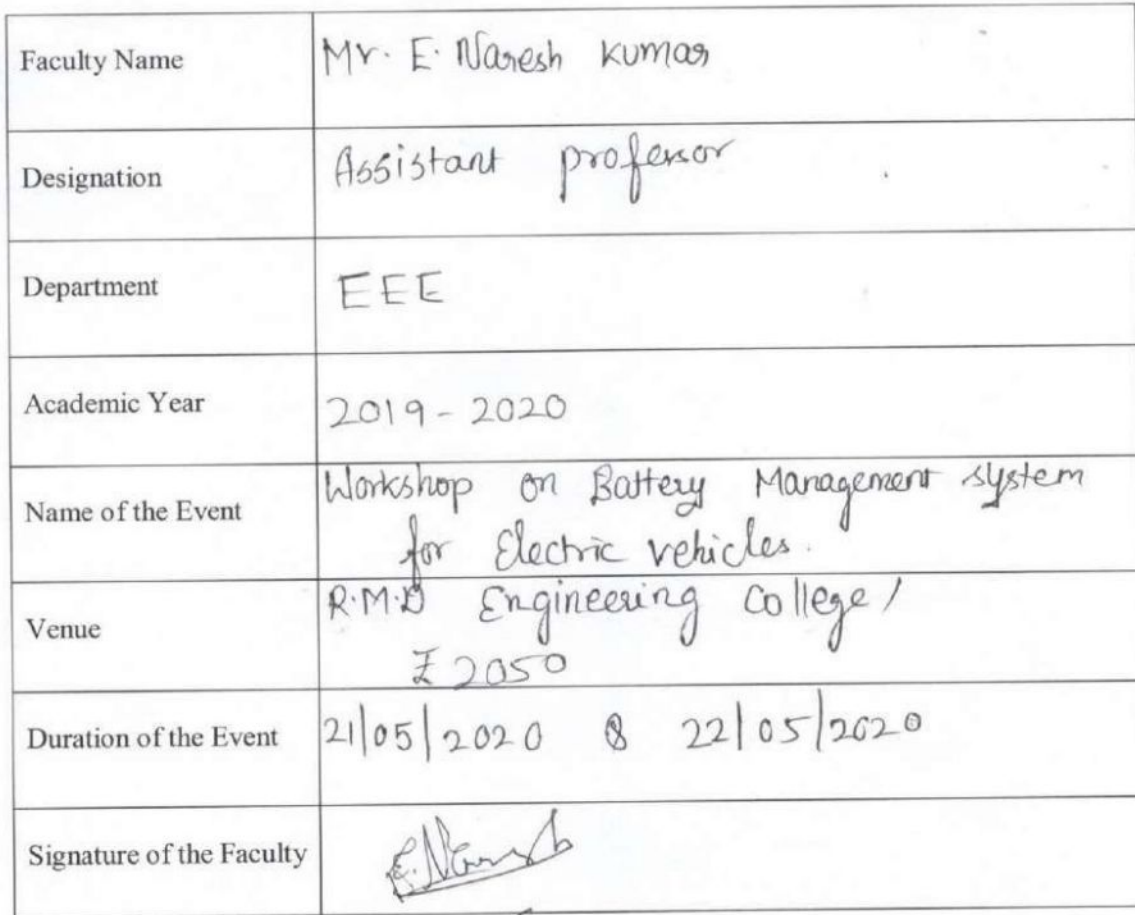 Faculty Name
Mr. E. Naresh kumar
Designation
Assistant professor
Department
EEE
Academic Year
2019 - 2020
Name of the Event
Workshop on Battery Management system
for Electric vehicles.
Venue
R.M.D Engineering college /
₹ 2050
Duration of the Event
21/05/2020 & 22/05/2020
Signature of the Faculty